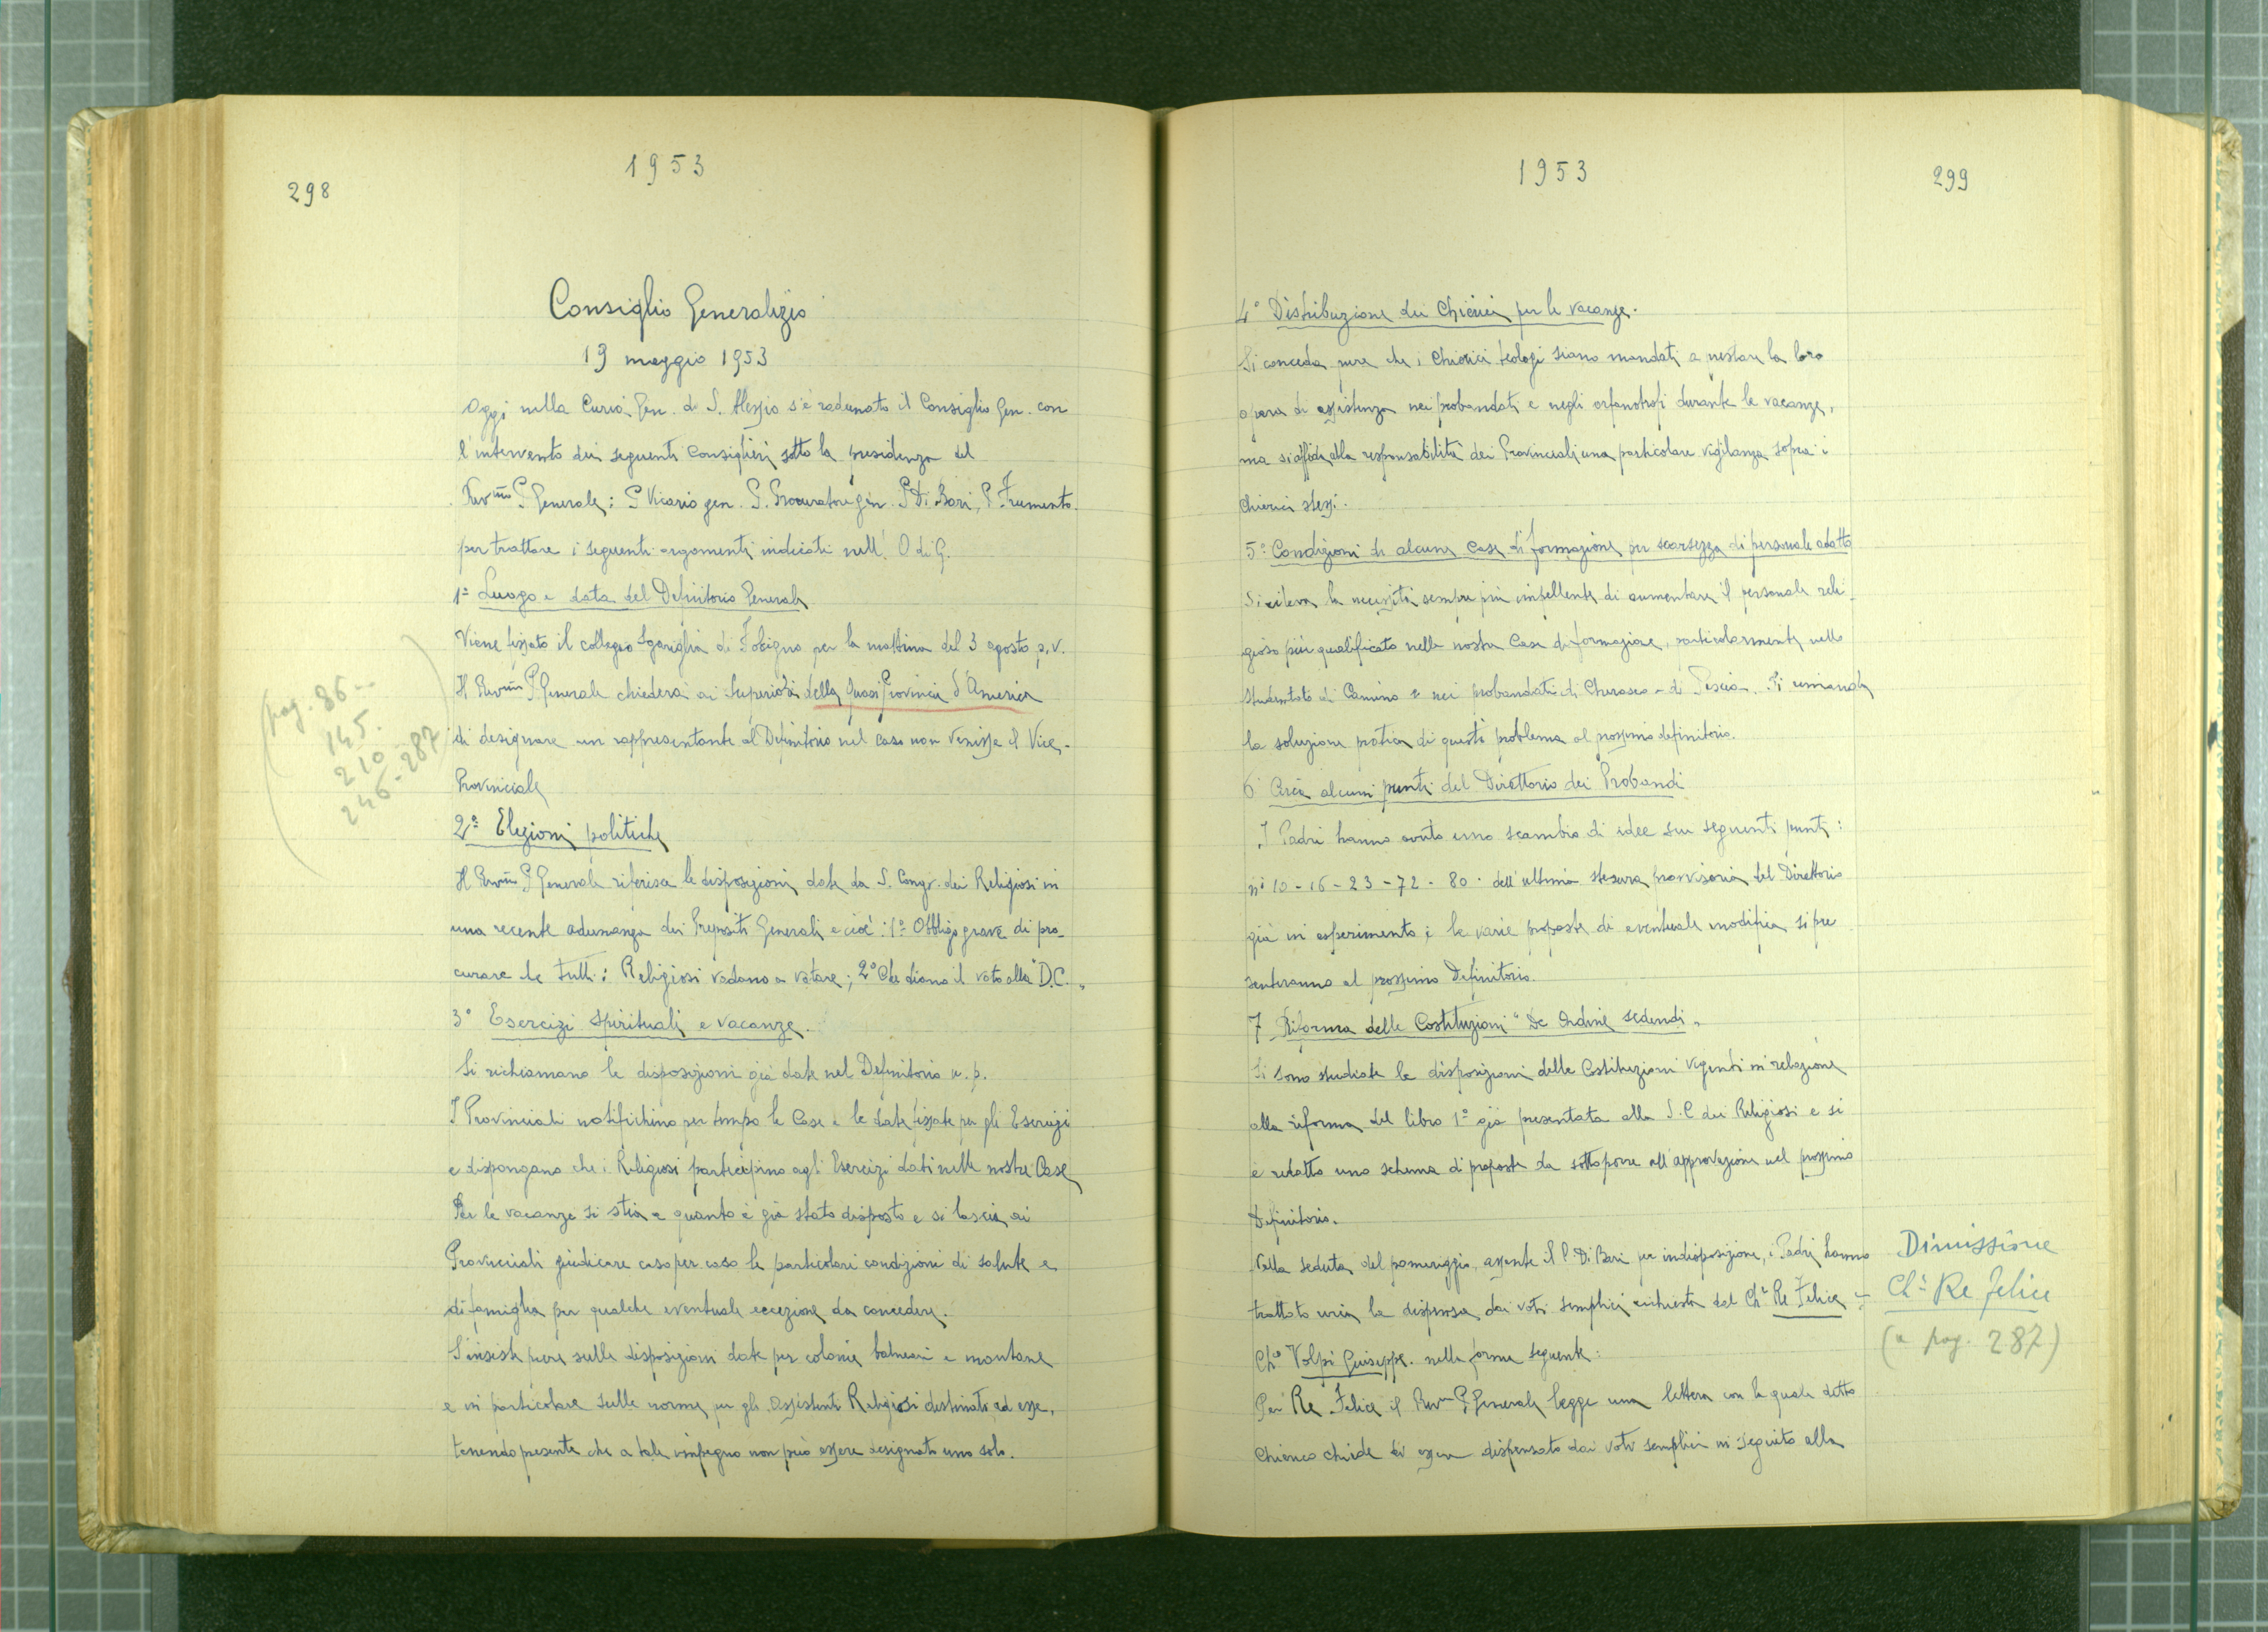 298
1953
Consiglio Generalizio
19 maggio 1953
Oggi nella Curia Gen. di S. Alessio s'è radunato il Consiglio Gen. con
l'intervento dei seguenti Consiglieri sotto la presidenza del
Rev.mo P. Generale: P. Vicario gen. P. Procuratore gen. P. Di Bari, P. Frumento.
per trattare i seguenti argomenti indicati nell' O di G.
1° Luogo e data del Definitorio Generale
Viene fissato il collegio Sgariglia di Foligno per la mattina del 3 agosto p.v.
Il Rev.mo P. Generale chiederà ai Superiori della quasi Provincia d'America
di designare un rappresentante al Definitorio nel caso non venisse il Vice-
Provinciale
pag. 86--
145.
210
246-287
2° Elezioni politiche
Il Rev.mo P. Generale riferisce le disposizioni date da S. Congr. dei Religiosi in
una recente adunanza dei Prepositi Generali e cioè: 1° Obbligo grave di pro-
curare che tutti i Religiosi vadano a votare; 2° Che diano il voto alla "D.C."
3° Esercizi spirituali e vacanze.
Si richiamano le disposizioni già date nel Definitorio u.p.
I Provinciali notifichino per tempo le Case e le date fissate per gli Esercizi
e dispongano che i Religiosi partecipino agli Esercizi dati nelle nostre Case
Per le vacanze si stia a quanto è già stato disposto e si lascia ai
Provinciali giudicare caso per caso le particolari condizioni di salute e
di famiglia per qualche eventuale eccezione da concedere.
S'insiste pure sulle disposizioni date per colonie balneari e montane
e in particolare sulle norme per gli assistenti Religiosi destinati ad esse,
tenendo presente che a tale impegno non può essere designato uno solo.
1953
299
4° Distribuzione dei Chierici per le vacanze.
Si conceda pure che i Chierici teologi siano mandati a prestare la loro
opera di assistenza nei probandati e negli orfanotrofi durante le vacanze,
ma si affida alla responsabilità dei Provinciali una particolare vigilanza sopra i
chierici stessi.
5° Condizioni di alcune Case di formazione per scarsezza di personale adatto
Si rileva la necessità sempre più impellente di aumentare il personale reli-
gioso più qualificato nelle nostre Case di formazione, particolarmente nello
studentato di Camino e nei probandati di Cherasco e di Pescia. Si rimanda
la soluzione pratica di questo problema al prossimo definitorio.
6° Circa alcuni punti del Direttorio dei Probandi
I Padri hanno avuto uno scambio di idee sui seguenti punti:
ni 10-16-23-72-80. dell'ultima stesura provvisoria del Direttorio
già in esperimento e le varie proposte di eventuale modifica si pre
senteranno al prossimo Definitorio.
7 Riforma delle Costituzioni "De Ordine sedendi"
Si sono studiate le disposizioni delle Costituzioni vigenti in relazione
alla riforma del libro 1° già presentata alla S.C. dei Religiosi e si
è redatto uno schema di proposte da sottoporre all'approvazione nel prossimo
Definitorio.
Nella seduta del pomeriggio, assente il P. Di Bari per indisposizione, i Padri hanno
trattato circa la dispensa dai voti semplici richiesta dal Ch° Re Felice e
Ch° Volpi Giuseppe. nella forma seguente:
Per Re Felice il Rev.mo P. Generale legge una lettera con la quale detto
Chierico chiede di essere dispensato dai voti semplici in seguito alla
Dimissione
Ch° Re Felice
(a pag. 287)